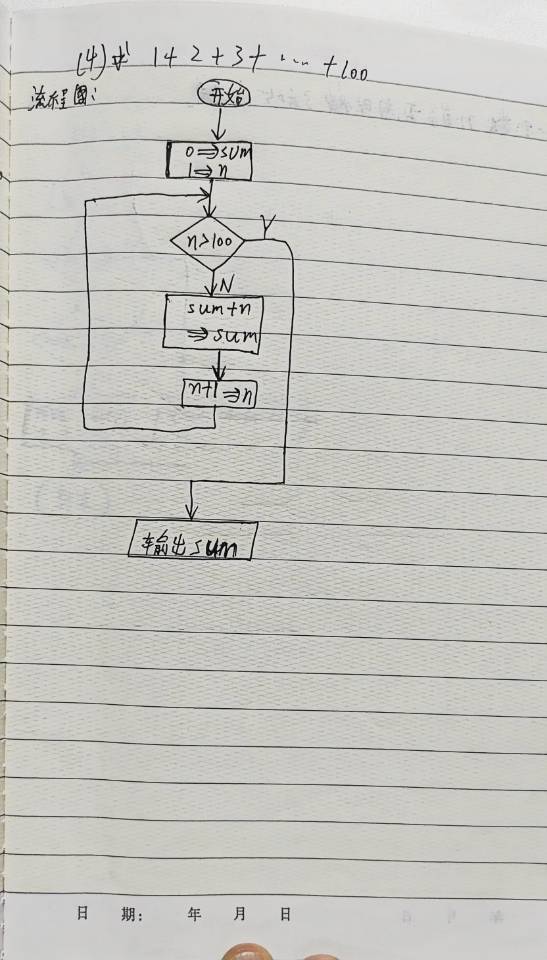 (4) 求 1+2+3+…+100
流程图:
开始
0⇒sum
1⇒n
n>100
Y
N
sum+n
⇒sum
n+1⇒n
输出sum
日 期: 年 月 日